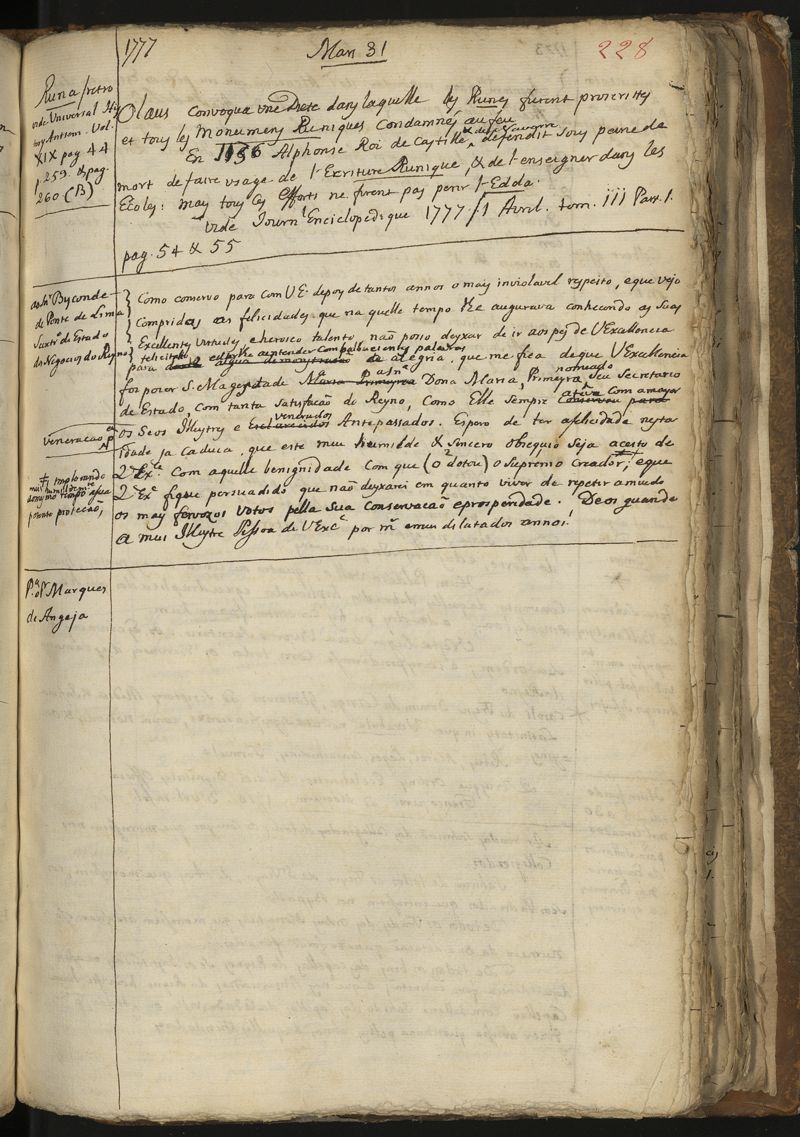 1777 Mars 31 228
Runa / retro
vide Universal His
tory Antient. Vol.
XIX pag 44
1. 259. & pag.
260 (B)
Olaus Convoqua une Diete dans laquelle les Runes furent proscrittes
et tous les Monumens Runiques Condamnés au feu
En 1136 Alphonse Roi de Castille & de Navarre defendit sous peine de
mort de faire usage de l'Ecriture Runique, & de l'enseigner dans les
Ecoles: mays tous les efforts ne firent pas perir l'Edda.
vide Journ.l Enciclopedique 1777 / 1 Avril. tom. III Part. 1.
pag. 54 & 55
ao Sr. Bysconde
de Ponte de Lima
Secr.o de Estado
dos Negocios do Reyno
Como conservo para com V E. depoys de tantos annos o mays inviolavel respeito, e que vejo
Compridas as felicidades que na quelle tempo lhe augurava conhecendo as Suas
Excellentes Virtudes, e heroico talento, não posso deyxar de ir aos pes de V Excellencia
para de alegria, que me fica de que V Excellencia
foy por S. Magestade Maria Primeyra a Snra. Dona Maria, Primeyra, nomeado seu Secretario
de Estado, com tanta satisfacaõ do Reyno, Como Elle sempre Conservou para com a mayor
veneracao
os Seos Illustres e Esclarecidos venerados Antepassados. Espero de ter a felicidade nesta
idade ja Caduca, que este meu humilde & sincero obsequio seja aceito de
V Ex.a Com aquelle benignidade Com que (o dotou) o Supremo Creador; e que
V Ex.a fique persuadido que naõ deyxarei em quanto viver de repeter a miudo
os mays fervozos votos pella Sua Conservacaõ e prosperidade. Deos guarde
a muy Illustre Pessoa de V Exc.a por m.s e muy dilatados annos.
implorando
mui humildem.te
ao mesmo tempo a sua
potente proteccaõ,
P.a o Sr. Marques
de Angeja